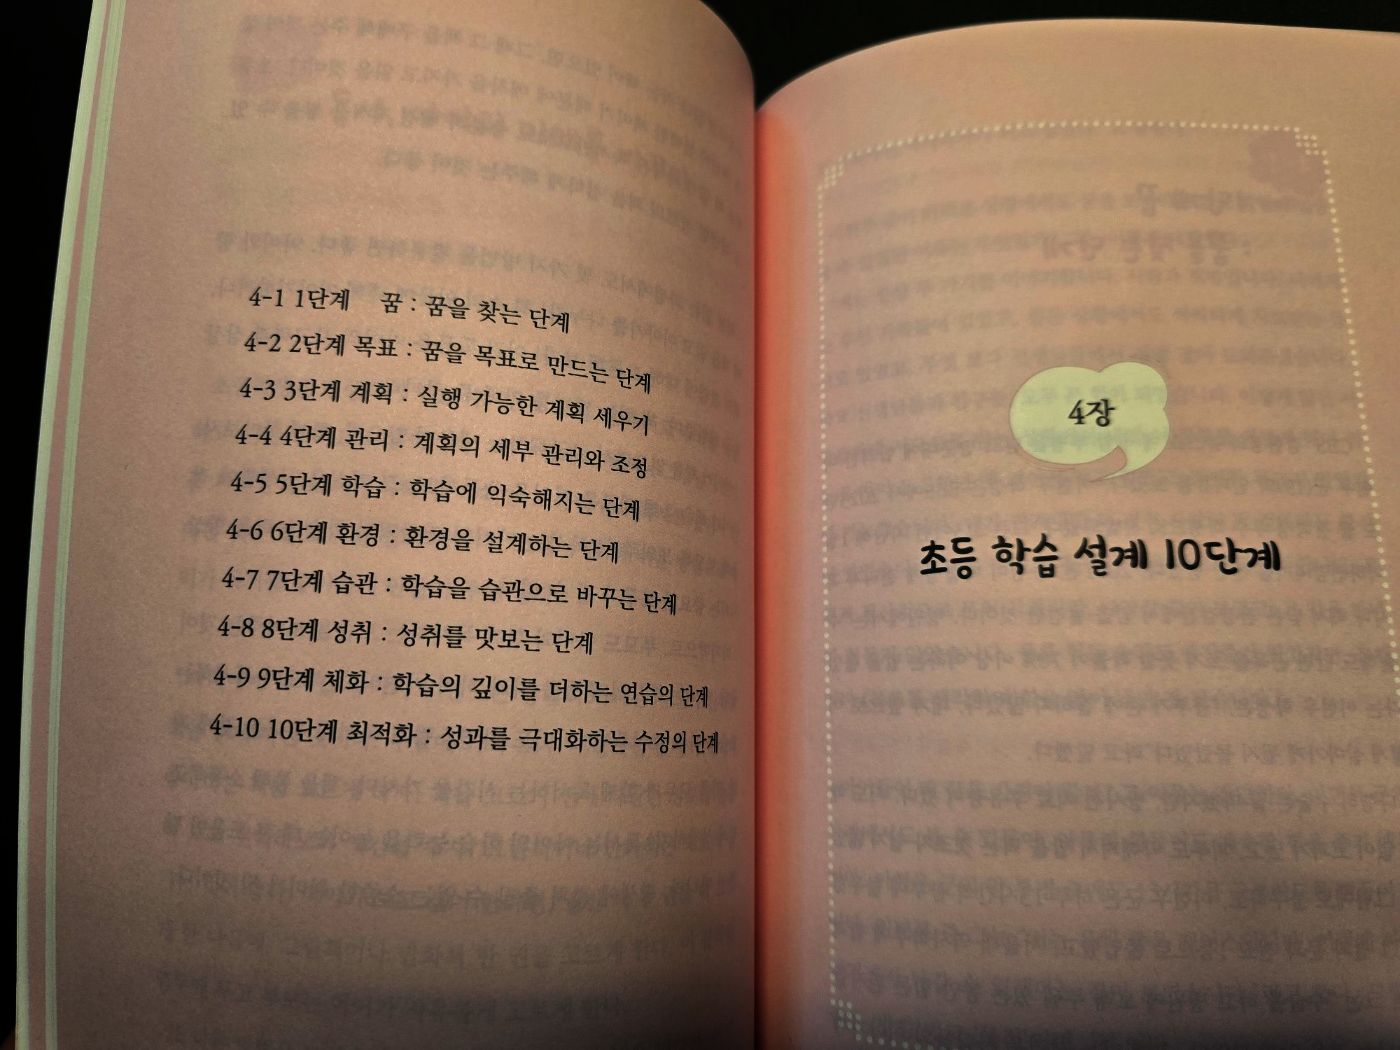 4-1 1단계 꿈 : 꿈을 찾는 단계
4-2 2단계 목표 : 꿈을 목표로 만드는 단계
4-3 3단계 계획 : 실행 가능한 계획 세우기
4-4 4단계 관리 : 계획의 세부 관리와 조정
4-5 5단계 학습 : 학습에 익숙해지는 단계
4-6 6단계 환경 : 환경을 설계하는 단계
4-7 7단계 습관 : 학습을 습관으로 바꾸는 단계
4-8 8단계 성취 : 성취를 맛보는 단계
4-9 9단계 체화 : 학습의 깊이를 더하는 연습의 단계
4-10 10단계 최적화 : 성과를 극대화하는 수정의 단계
4장
초등 학습 설계 10단계